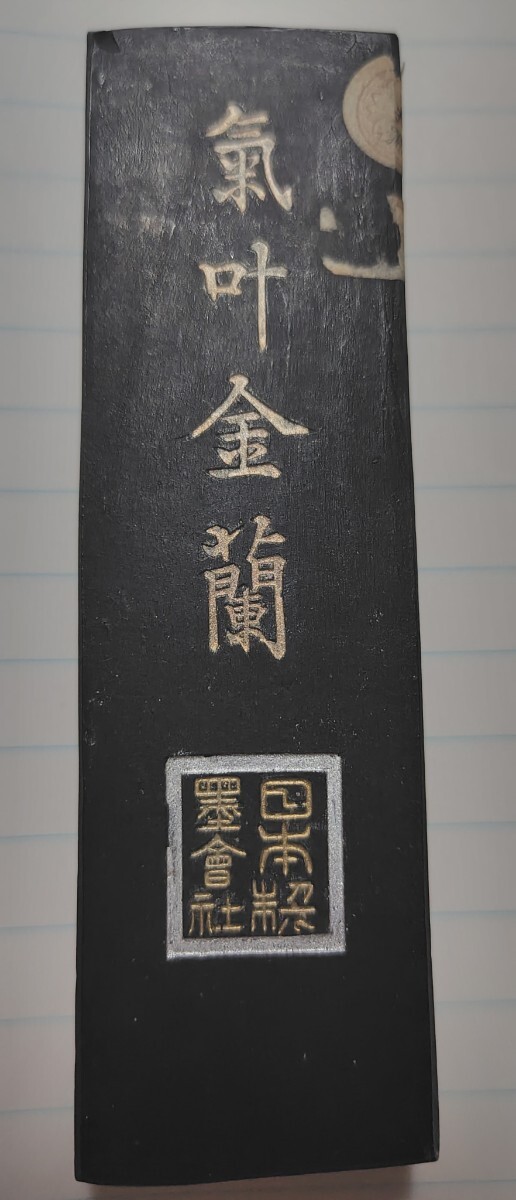 氣叶金蘭
日本製
墨會社